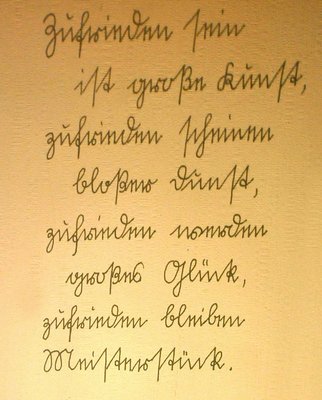 Zufrieden sein
ist große Kunst,
zufrieden scheinen
bloßer Dunst,
zufrieden werden
großes Glück,
zufrieden bleiben
Meisterstück.